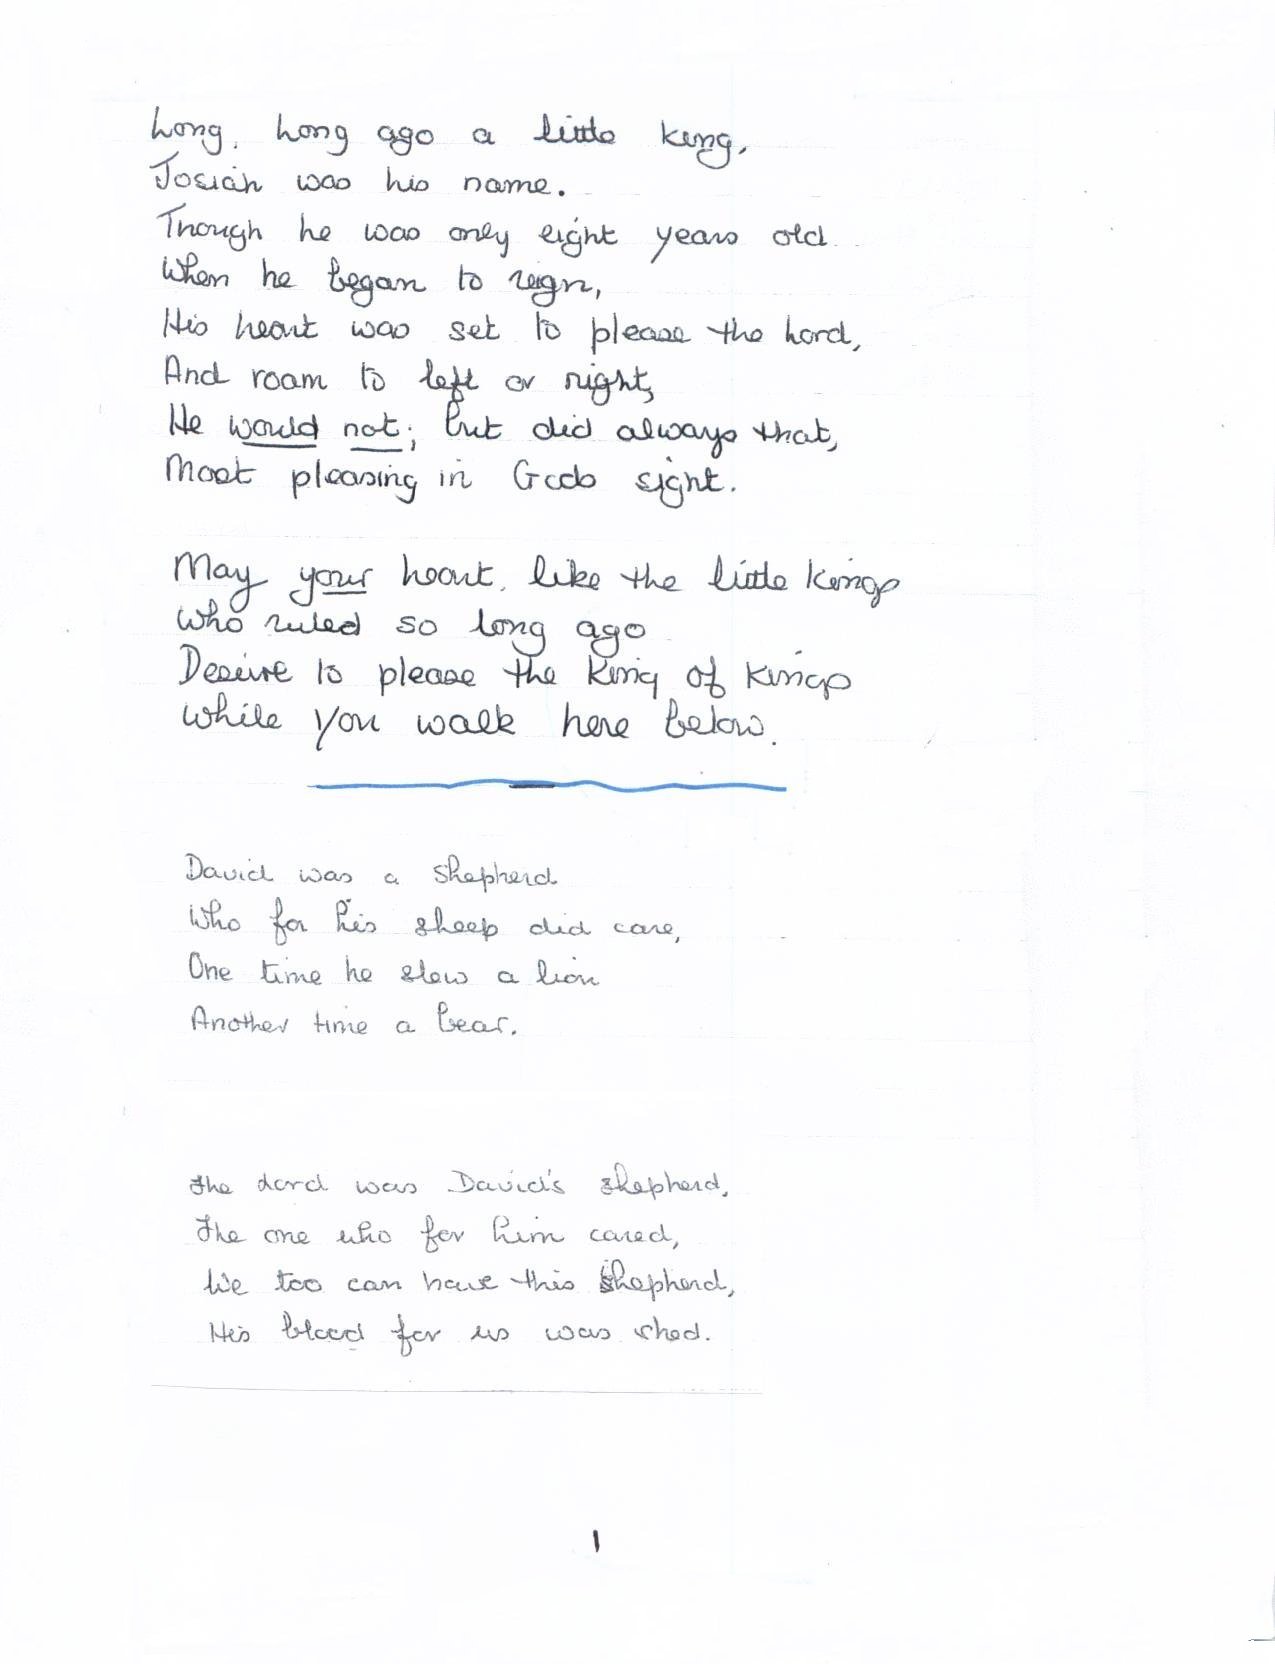 Long, Long ago a little king,
Josiah was his name.
Though he was only eight years old
When he began to reign,
His heart was set to please the Lord,
And roam to left or right,
He would not; but did always that,
Most pleasing in Gods sight.
May your heart, like the little kings
Who ruled so long ago
Desire to please the King of kings
While you walk here below.
David was a shepherd
Who for his sheep did care,
One time he slew a lion
Another time a bear.
The Lord was David's shepherd,
The one who for him cared,
We too can have this Shepherd,
His blood for us was shed.
1